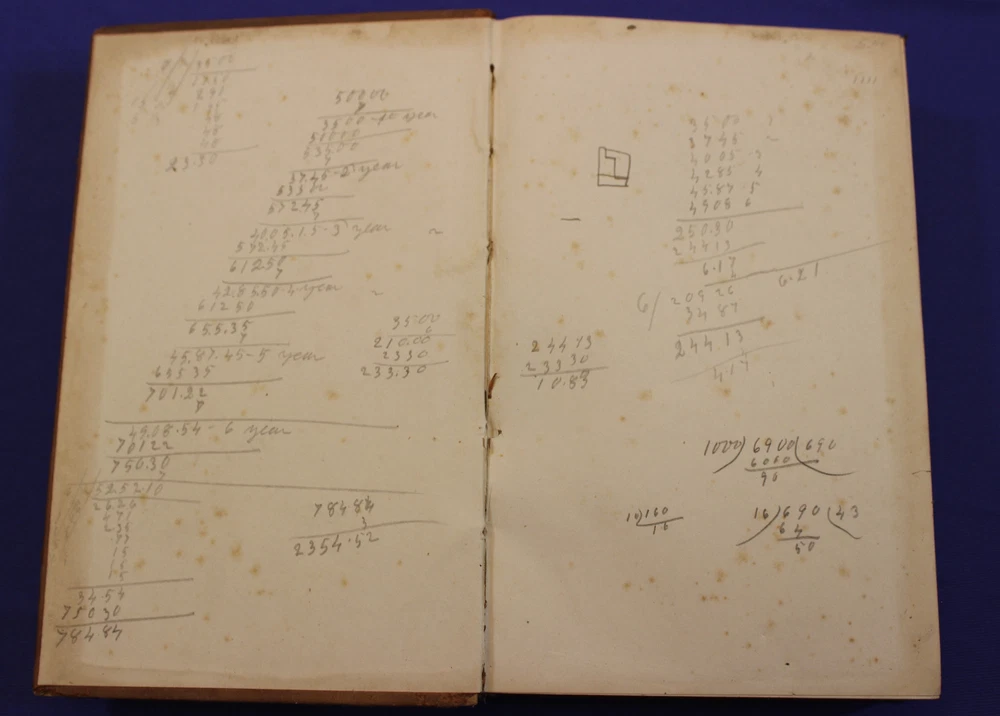 23.30
50000
7
3500-10 year
50000
53500
7
37.45-2 year
53500
57245
7
4005.15-3 year
572.45
61250
7
42.8750-4 year
61250
655.35
7
45.87.45-5 year
65535
701.22
7
49.08.54-6 year
70122
750.30
7
5252.10
3454
75030
78484
35.00
6
210.00
2330
233.30
78484
3
2354.52
3500
3745 2
4005 3
4285 4
4587 5
4908 6
250.30
24413
6.17
6.21
6/ 20926
3487
244.13
414
24413
23330
10.83
1000)6900(690
6000
90
10)160
16
16)690(43
64
50